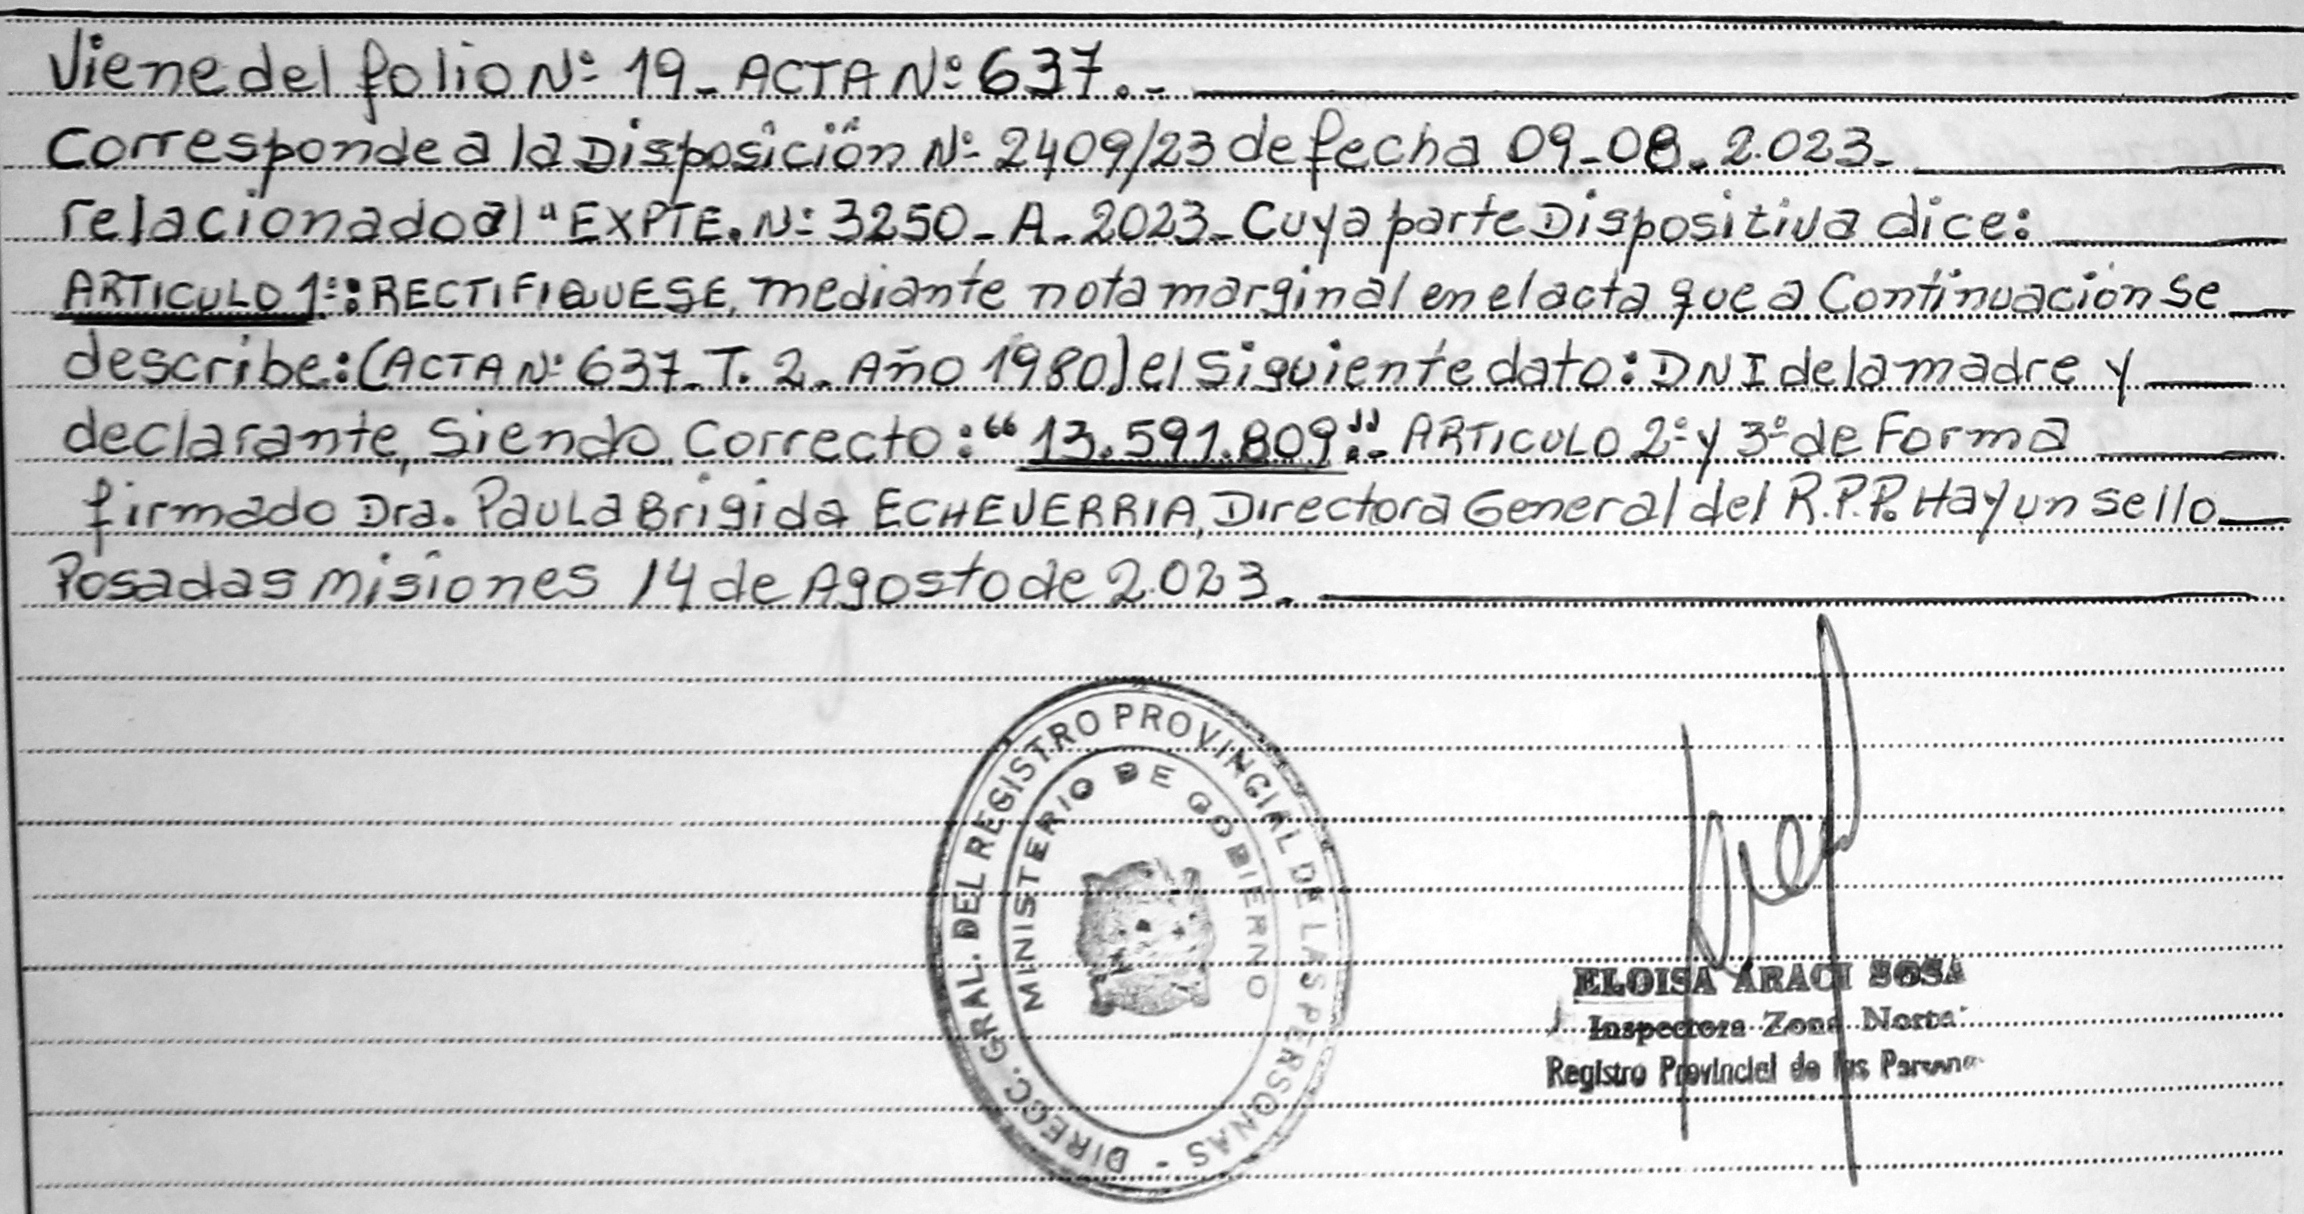 Viene del folio Nº 19 - ACTA Nº 637.-
Corresponde a la Disposición Nº 2409/23 de fecha 09-08-2.023-
relacionado al "EXPTE. Nº 3250-A-2023- Cuya parte Dispositiva dice:
ARTICULO 1º: RECTIFIQUESE, mediante nota marginal en el acta que a Continuación Se
describe: (ACTA Nº 637-T. 2- Año 1980) el Siguiente dato: DNI de la madre y
declarante, Siendo Correcto: "13.591.809".- ARTICULO 2º y 3º de Forma
firmado Dra. PAULA Brigida ECHEVERRIA, Directora General del R.P.P. Hay un sello
Posadas Misiones 14 de Agosto de 2.023.
DIRECC. GRAL. DEL REGISTRO PROVINCIAL DE LAS PERSONAS -
MINISTERIO DE GOBIERNO
ELOISA ARACI SOSA
Inspectora Zona Norte
Registro Provincial de las Personas